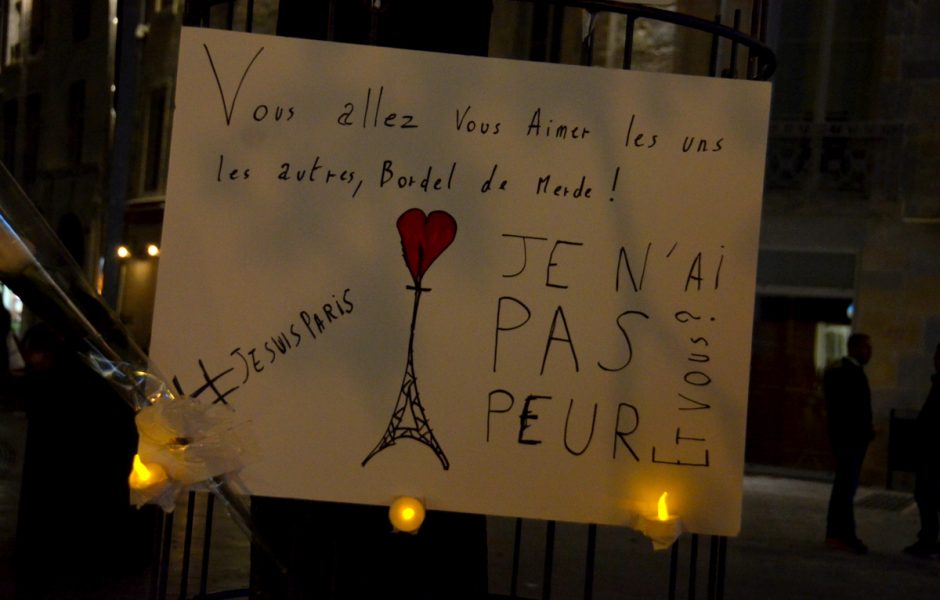 Vous allez Vous Aimer les uns
les autres, Bordel de Merde !
#JESUISPARIS
JE N'Ai
PAS
PEUR
ET VOUS ?